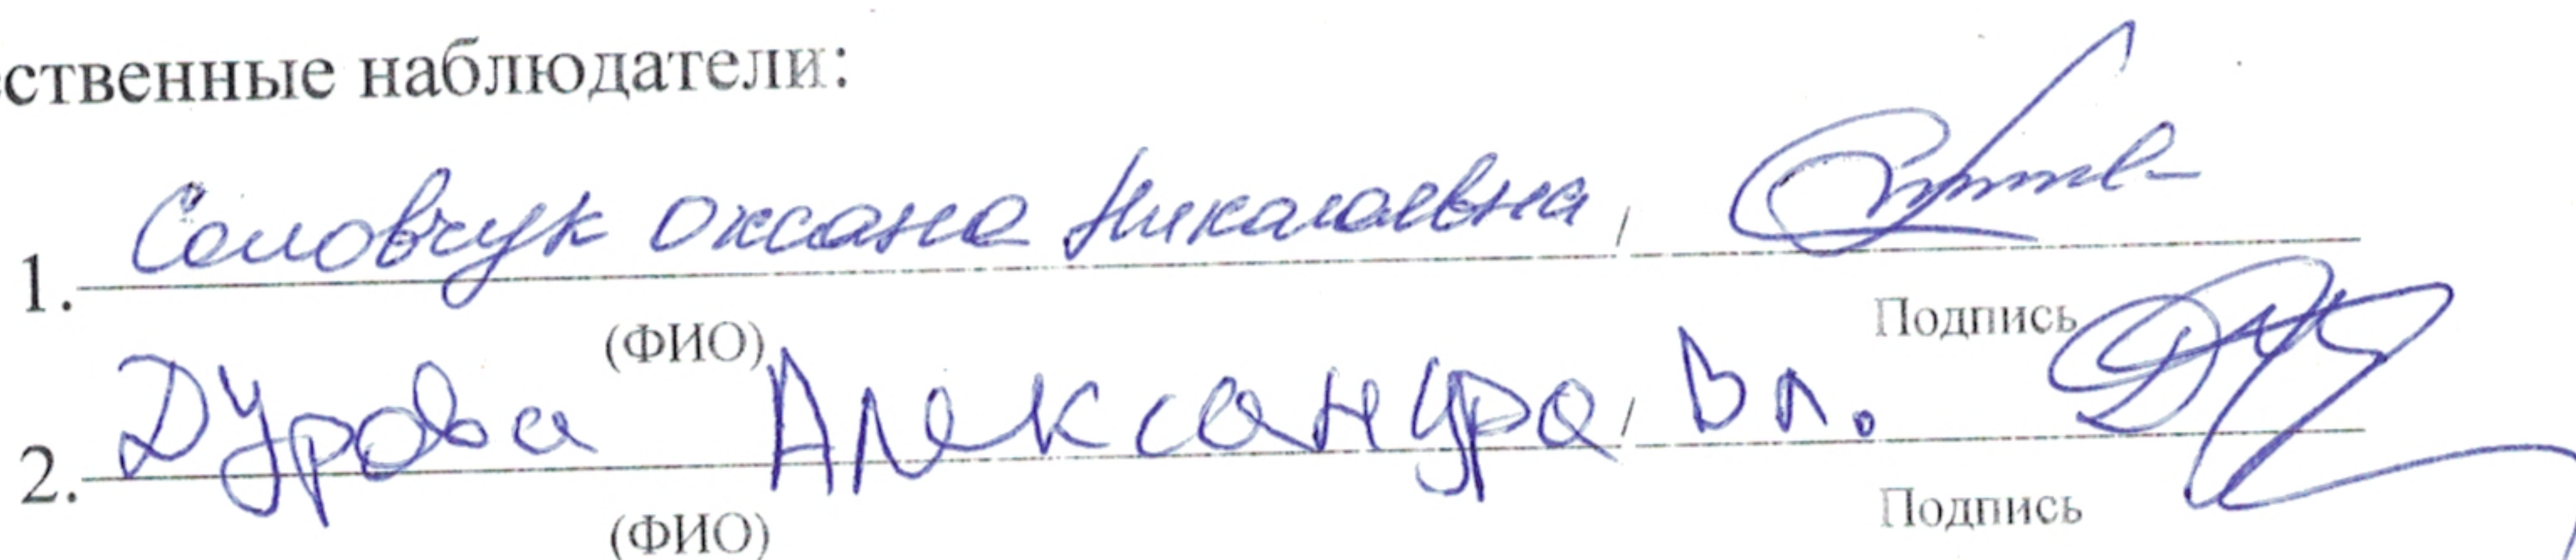 ственные наблюдатели:
1. Соловчук Оксана Николаевна /
(ФИО) Подпись
2. Дурова Александра / Вл.
(ФИО) Подпись